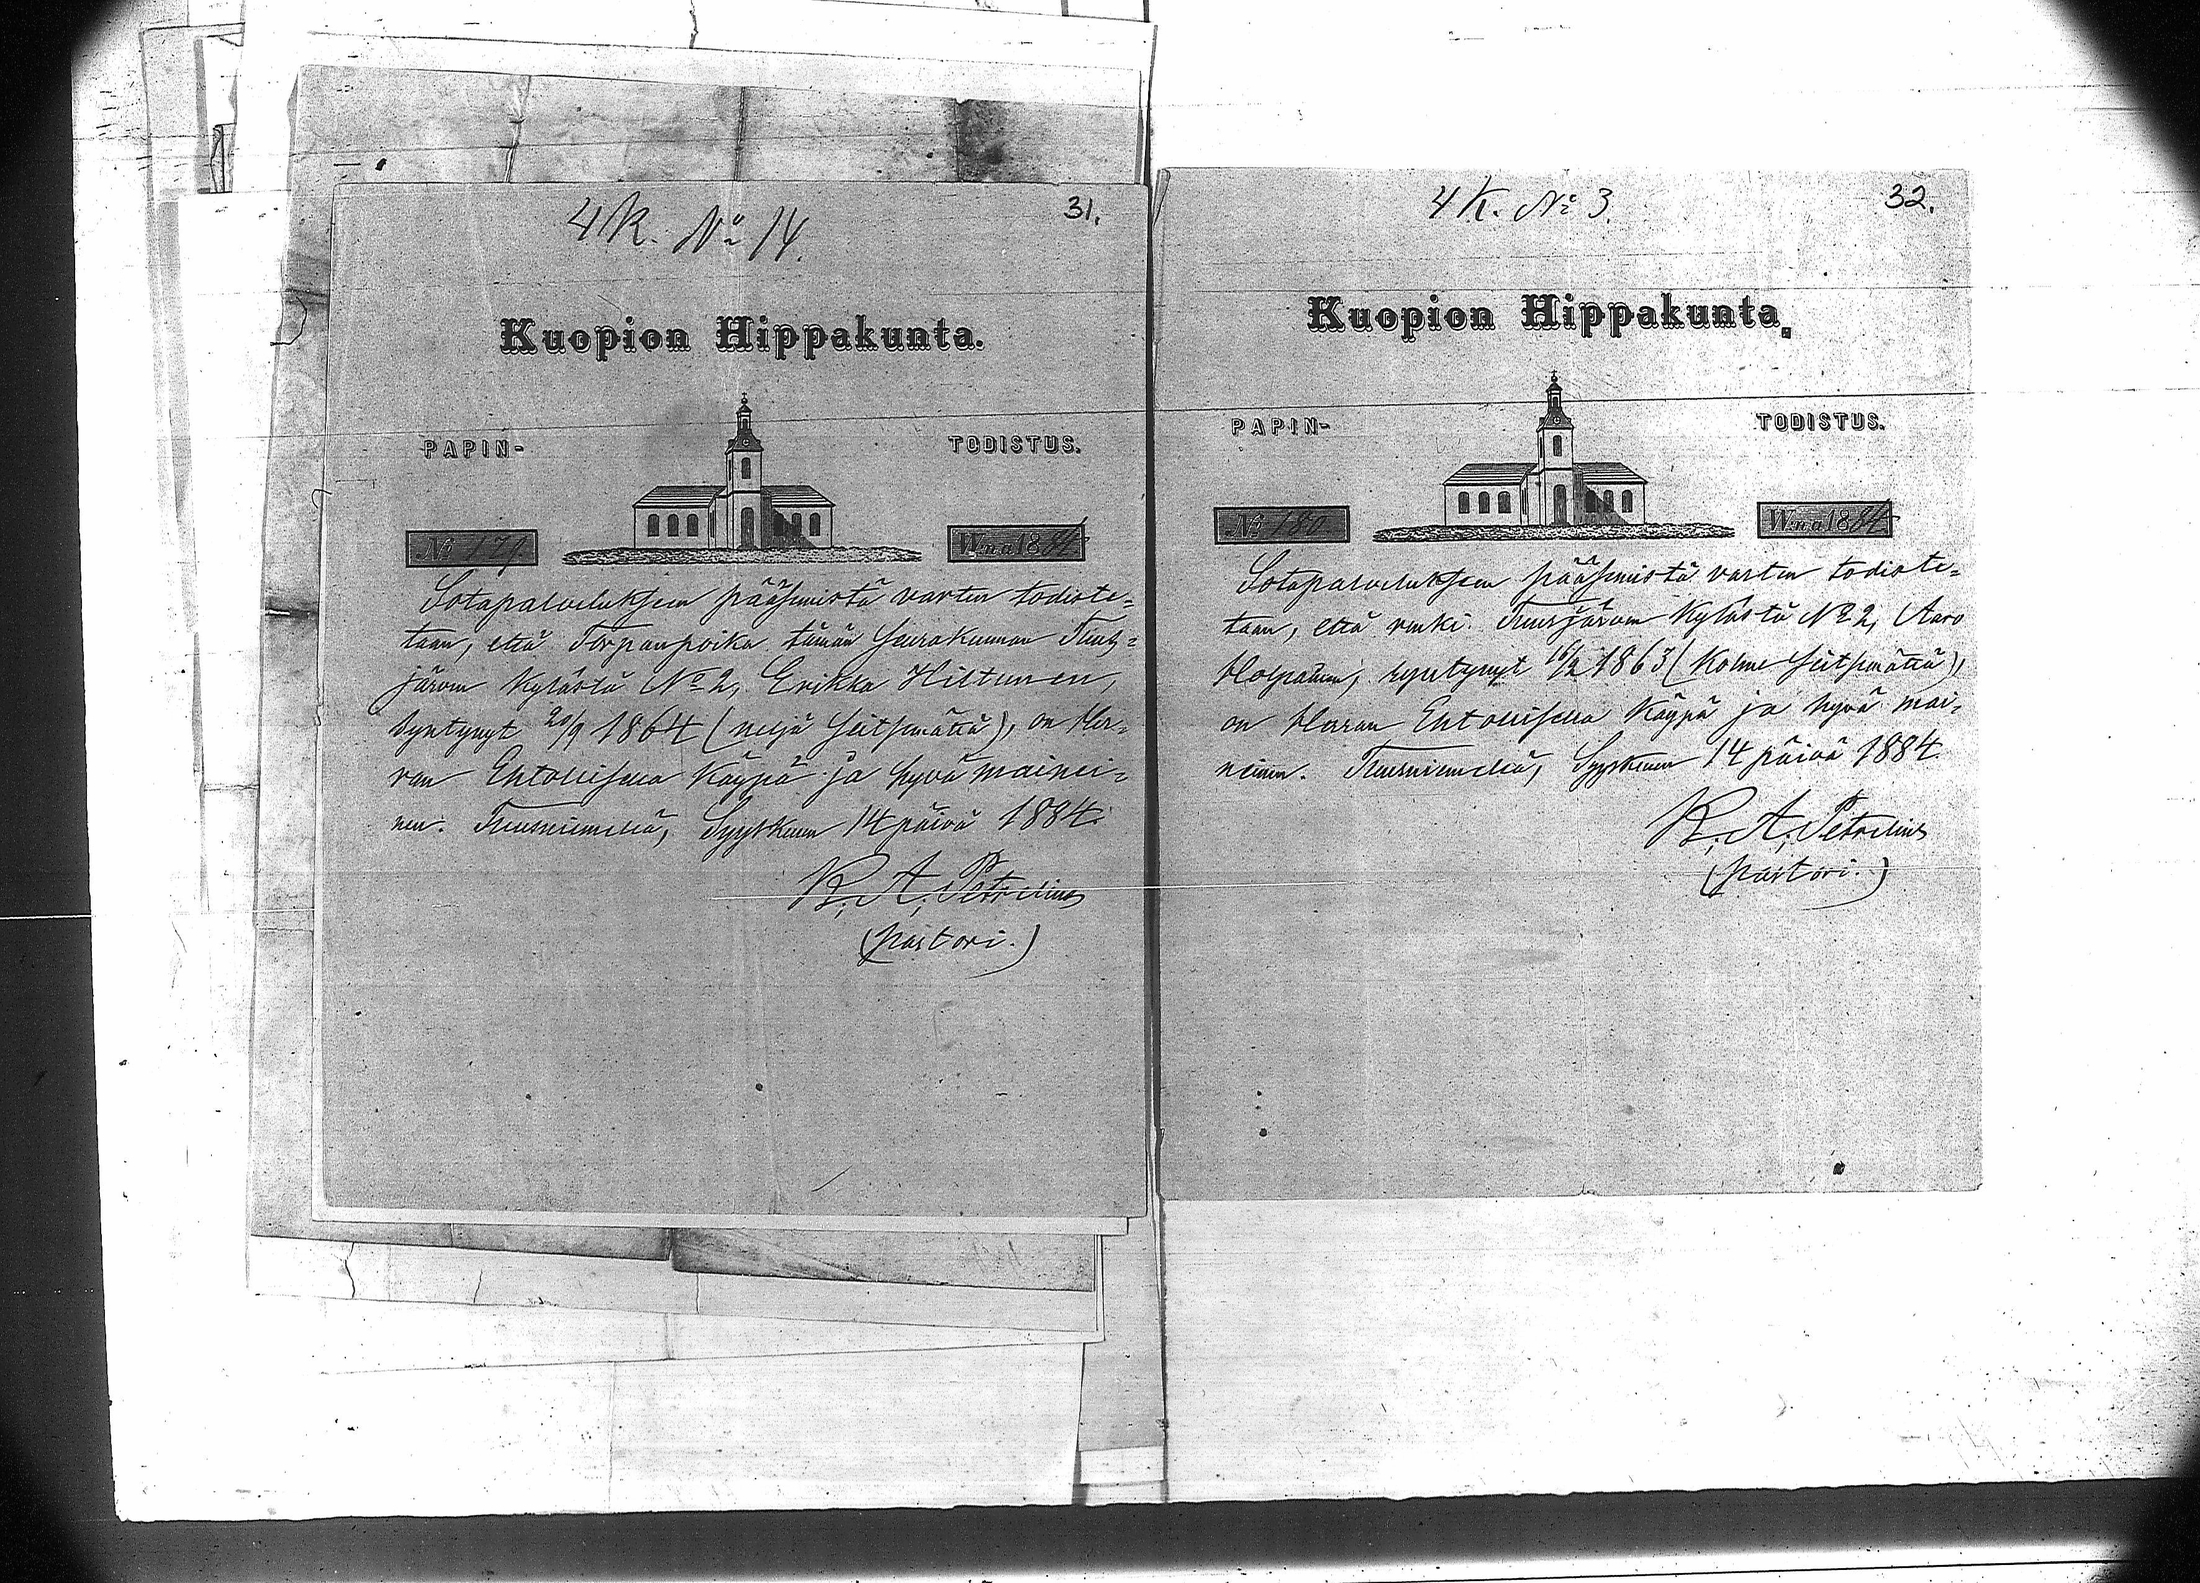 4 K. No 14.
31.
Kuopion Hippakunta.
PAPIN-
TODISTUS.
No 179.
W:na 1884
Sotapalvelukseen pääsemistä varten todiste-
taan, että Torpanpoika tämän seurakunnan Tuus-
järven kylästä No 2, Erikka Hiltunen,
syntynyt 20/9 1864 (neljä seitsemättä), on Her-
ran Ehtoollisella käypä ja hyvä mainei-
nen. Tuusniemellä, Syyskuun 14 päivä 1884.
K. A. Petrelius
(pastori.)
4 K. No 3.
32.
Kuopion Hippakunta.
PAPIN-
TODISTUS.
No 180
W:na 1884
Sotapalvelukseen pääsemistä varten todiste-
taan, että renki Tuusjärven kylästä No 2, Aaro
syntynyt 16/2 1863 (kolme seitsemättä),
on Herran Ehtoollisella käypä ja hyvä mai-
neinen. Tuusniemellä, Syyskuun 14 päivä 1884.
K. A. Petrelius
(pastori.)